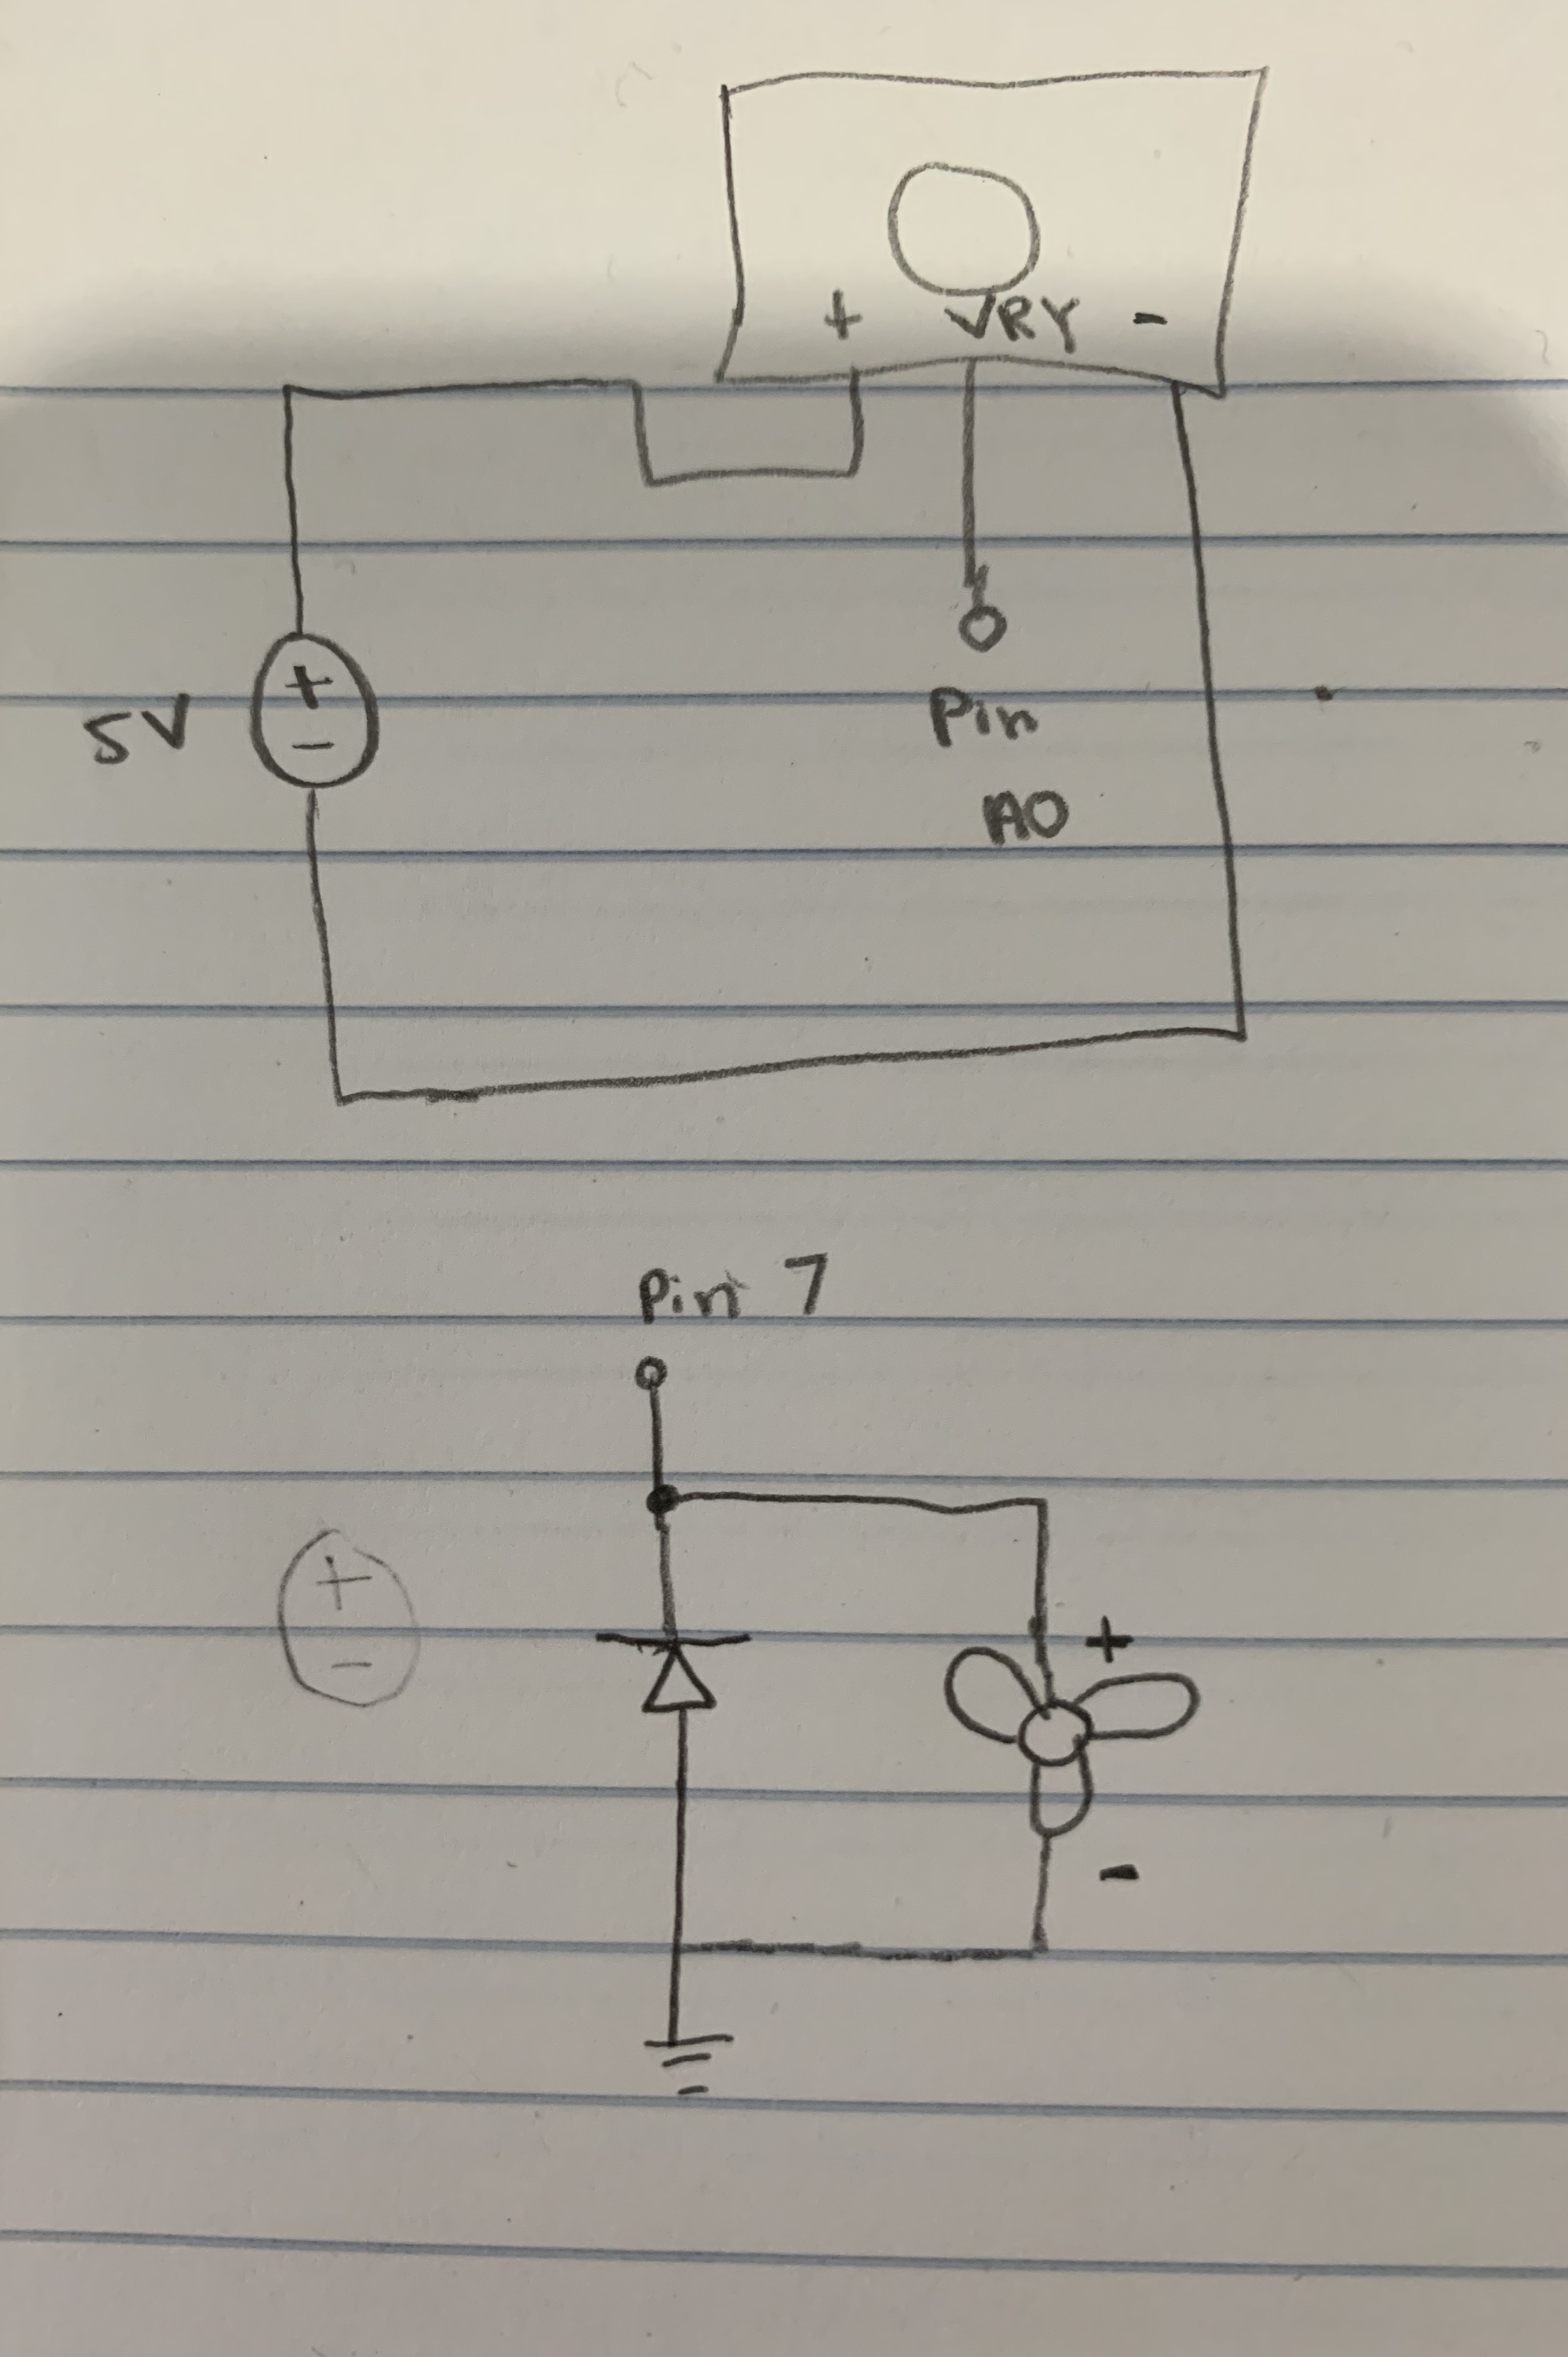 + VRY -
+
-
5V
Pin
A0
Pin 7
+
-
+
-